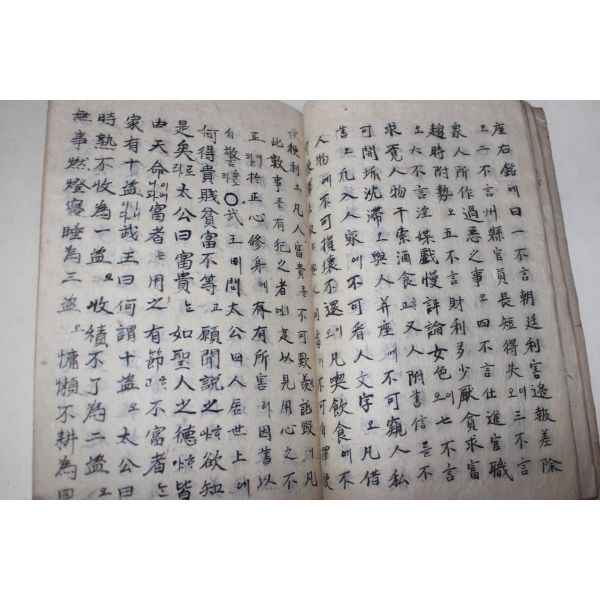 座右銘에曰一不言朝廷利害邊報差除
오二不言州縣官員長短得失오三不言
衆人所作過惡之事오四不言仕進官職
趨時附勢오五不言財利多少厭貧求富
오六不言淫媟戱慢評論女色오七不言
求覓人物干索酒食오又人附書信을不
可問所沈滯오與人幷座에不可窺人私
書오凡入人家에不可看人文字오凡借
人物에不可損壞不還이오凡喫飮食에不
利오凡人富貴를不可歎羨詆毁니凡
此數事를有犯之者면足以見用心之不
正이라於正心修身에有有所害라因書以
自警하노라〇武王이問太公曰人居世上에
何得貴賤貧富不等고願聞說之하야欲知
是矣로이다太公曰富貴는如聖人之德하야皆
由天命이어니와富者는用之有節하고不富者는
家有十盜이니이다武王曰何謂十盜오太公曰
時熟不收為一盜오收積不了為二盜오
無事燃燈寢睡為三盜오慵懶不耕為四